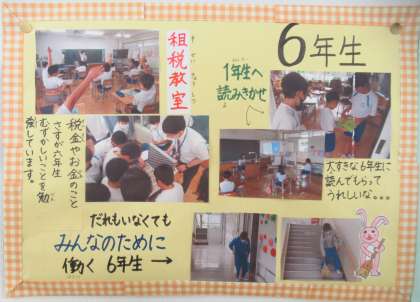 6年生
租税教室
そ ぜい きょう しつ
1年生へ
読みきかせ
税金やお金のこと
さすが六年生
むずかしいことを勉
強しています。
大すきな6年生に
読んでもらって
うれしいな。。。
だれもいなくても
みんなのために
働く 6年生 →